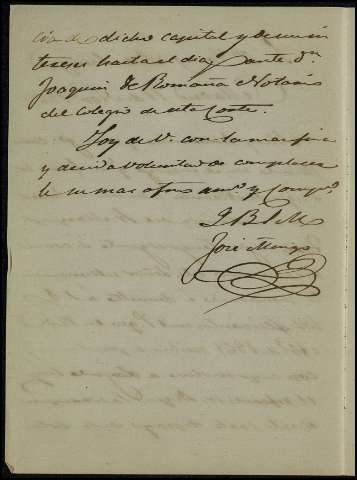 cia de dicho capital y de sus in
tereses hasta el dia, ante Dn
Joaquin de Romaña Notario
del Colegio de esta Corte.
Soy de V. con la mas fina
y decidida voluntad de complacer
le su mas afmo amo y Compo
Q B S M
José